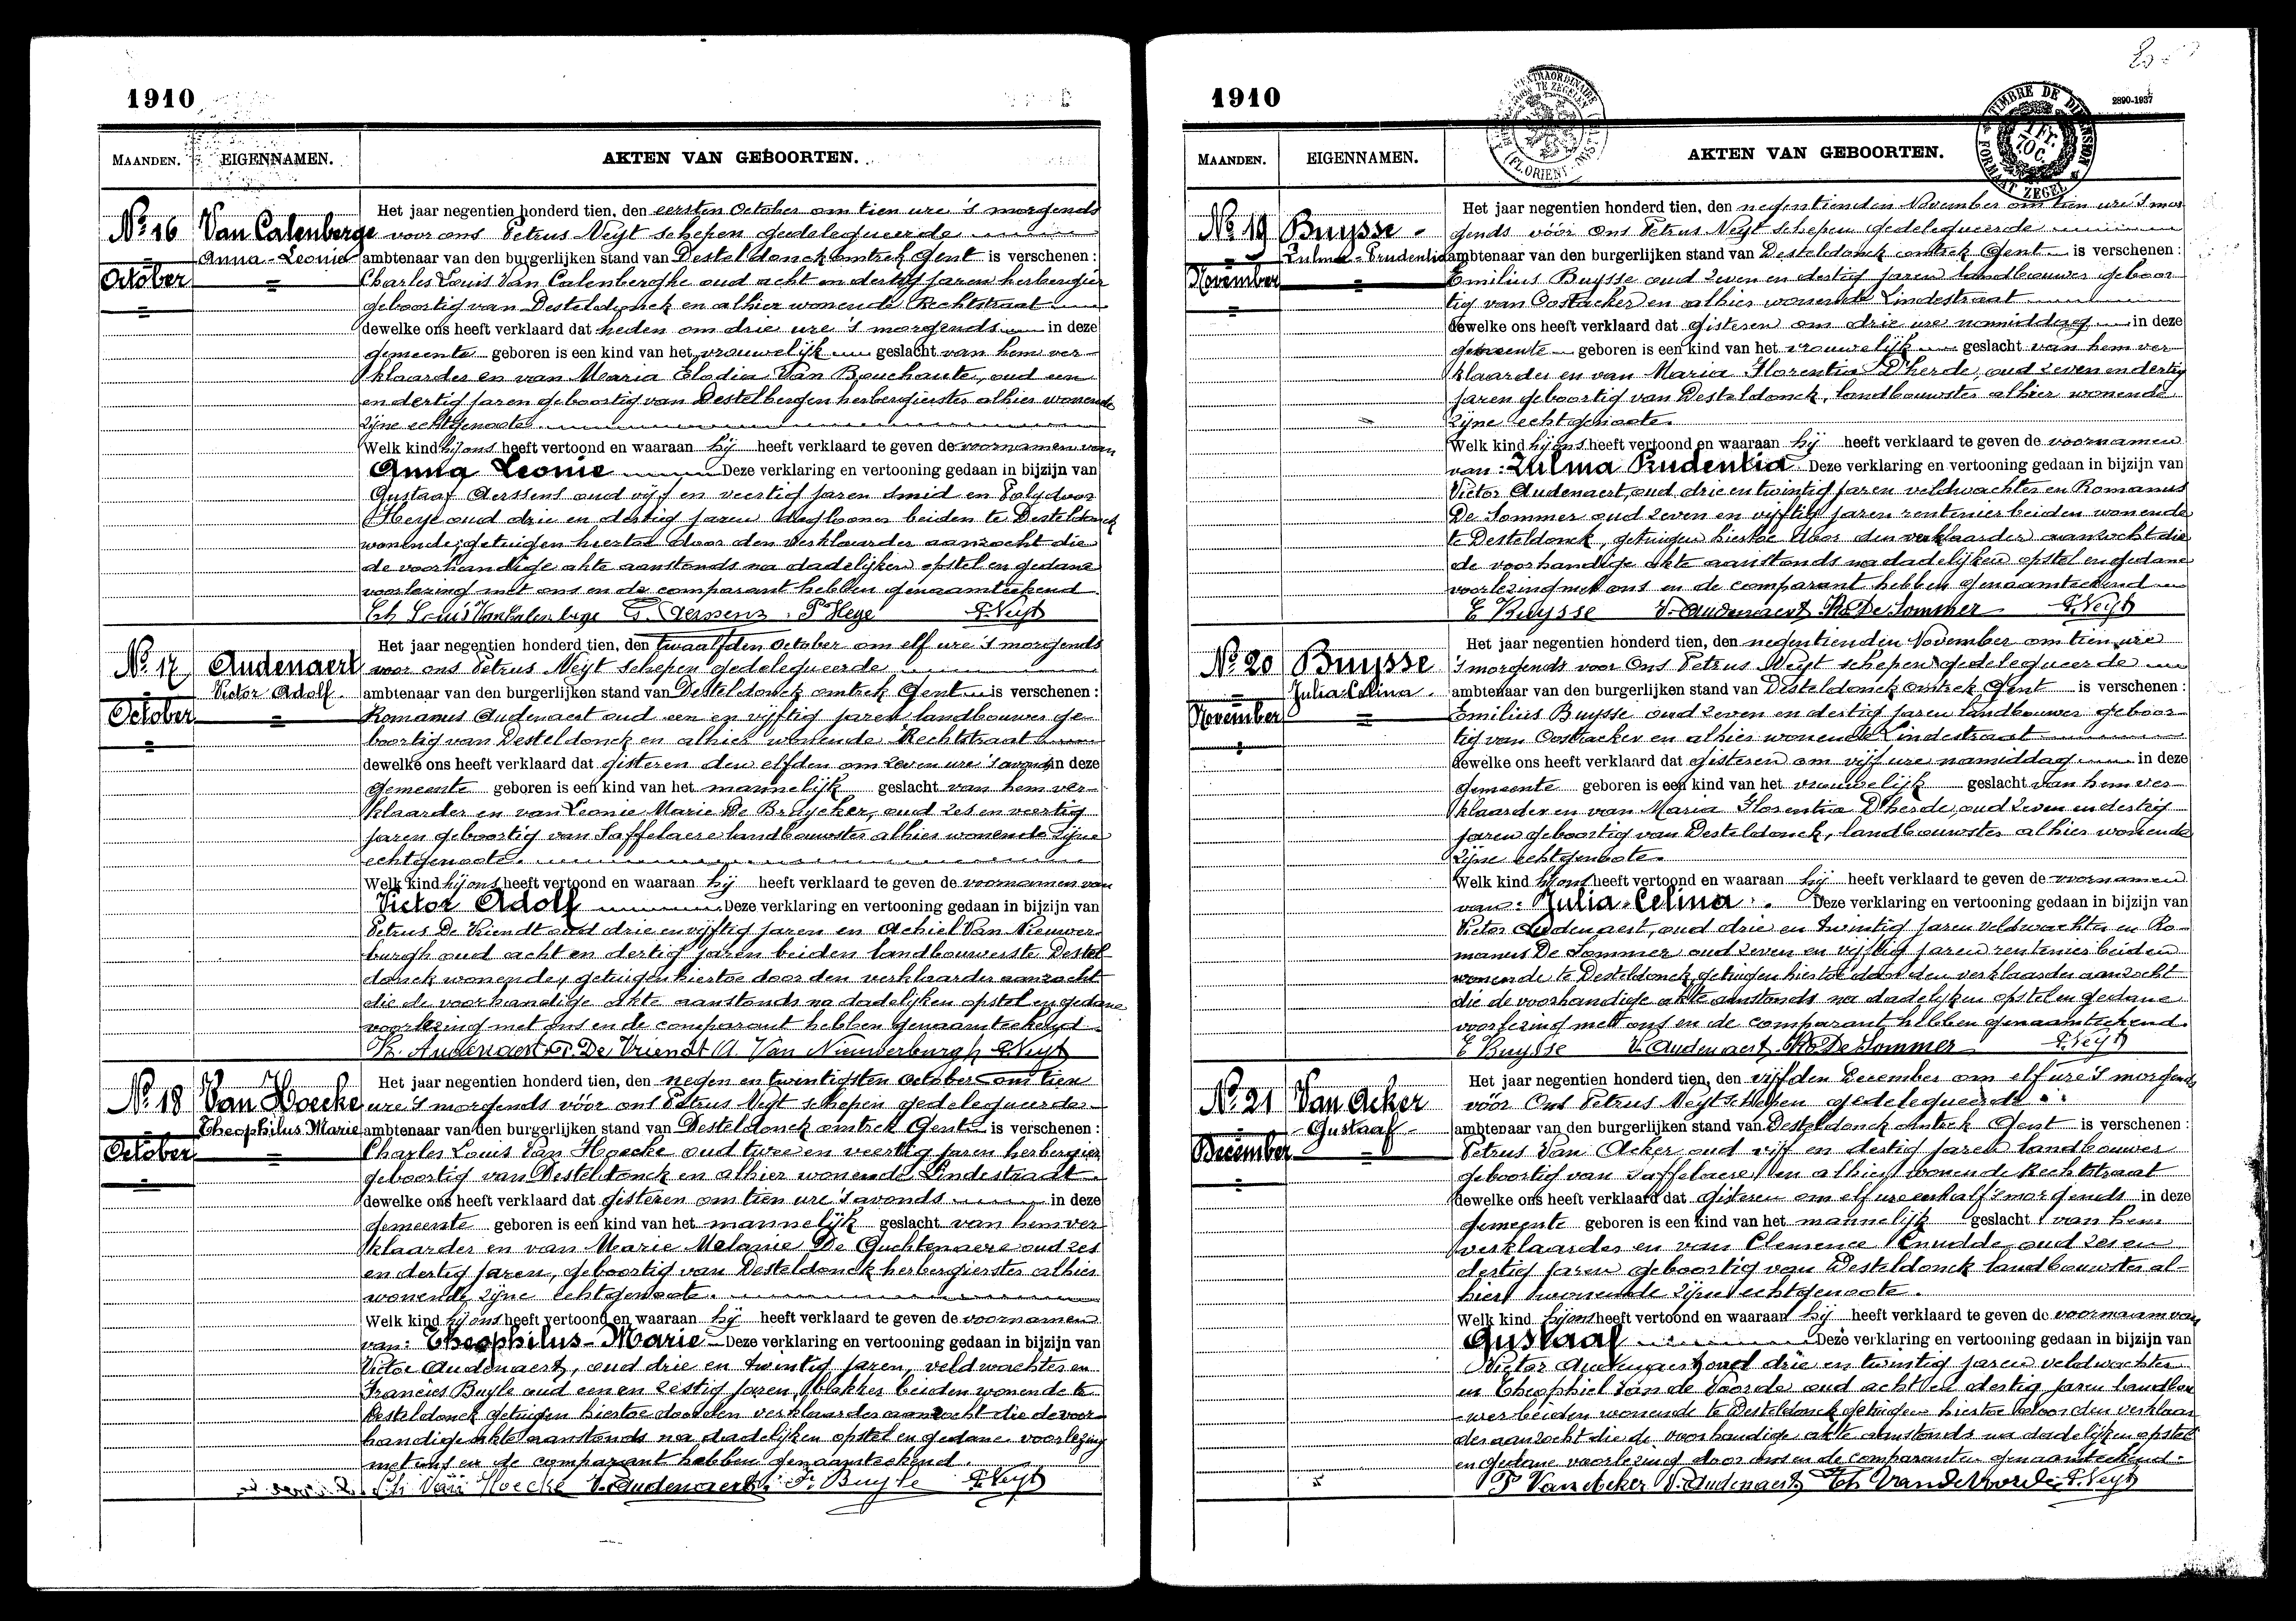 1910
MAANDEN.
EIGENNAMEN.
AKTEN VAN GEBOORTEN.
No 16
October
Van Calenberge
Anna-Leonie
Het jaar negentien honderd tien, den eersten October om tien ure 's morgends
voor ons Petrus Neyt schepen gedelegueerde
ambtenaar van den burgerlijken stand van Desteldonck omtrek Gent is verschenen :
Charles Louis Van Calenberghe oud acht en dertig jaren herbergier
geboortig van Desteldonck en alhier wonende Rechtstraat
dewelke ons heeft verklaard dat heden om drie ure 's morgends in deze
gemeente geboren is een kind van het vrouwelijk geslacht van hem ver-
klaarder en van Maria Elodia Van Bouchaute, oud een
en dertig jaren geboortig van Destelbergen herbergierster alhier wonende
zijne echtgenoote
Welk kind hij ons heeft vertoond en waaraan hij heeft verklaard te geven de voornamen van
Anna Leonie Deze verklaring en vertooning gedaan in bijzijn van
Gustaaf Aerssens oud vijf en veertig jaren smid en Polydoor
Heye oud drie en dertig jaren daglooner beiden te Desteldonck
wonende; getuigen hiertoe door den verklaarder aanzocht die
de voorhandige akte aanstonds na dadelijken opstel en gedane
voorlezing met ons en de comparant hebben genaamteekend
Ch Louis Van Calenberge G. Aerssens P Heye P. Neyt
No 17
October
Audenaert
Victor Adolf
Het jaar negentien honderd tien, den twaalfden October om elf ure 's morgends
voor ons Petrus Neyt schepen gedelegueerde
ambtenaar van den burgerlijken stand van Desteldonck omtrek Gent is verschenen :
Romanus Audenaert oud een en vijftig jaren landbouwer ge-
boortig van Desteldonck en alhier wonende Rechtstraat
dewelke ons heeft verklaard dat gisteren den elfden om zeven ure 's avonds in deze
gemeente geboren is een kind van het mannelijk geslacht van hem ver-
klaarder en van Leonie Marie De Bruycker, oud zes en veertig
jaren geboortig van Saffelaere landbouwster alhier wonende zijne
echtgenoote.
Welk kind hij ons heeft vertoond en waaraan hij heeft verklaard te geven de voornamen van
Victor Adolf Deze verklaring en vertooning gedaan in bijzijn van
Petrus De Vriendt oud drie en vijftig jaren en Achiel Van Nieuwer-
burgh oud acht en dertig jaren beiden landbouwers te Destel-
donck wonende, getuigen hiertoe door den verklaarder aanzocht
die de voorhandige akte aanstonds na dadelijken opstel en gedane
voorlezing met ons en de comparant hebben genaamteekend
R. Audenaert P. De Vriendt A. Van Nieuwerburgh P. Neyt
No 18
October
Van Hoecke
Theophilus Marie
Het jaar negentien honderd tien, den negen en twintigsten October om tien
ure 's morgends vóór ons Petrus Neyt schepen gedelegueerde
ambtenaar van den burgerlijken stand van Desteldonck omtrek Gent is verschenen :
Charles Louis Van Hoecke oud twee en veertig jaren herbergier
geboortig van Desteldonck en alhier wonende Lindestraat
dewelke ons heeft verklaard dat gisteren om tien ure 's avonds in deze
gemeente geboren is een kind van het mannelijk geslacht van hem ver
klaarder en van Marie Melanie De Guchtenaere oud zes
en dertig jaren, geboortig van Desteldonck herbergierster alhier
wonende zijne echtgenoote.
Welk kind hij ons heeft vertoond en waaraan hij heeft verklaard te geven de voornamen
van: Theophilus-Marie Deze verklaring en vertooning gedaan in bijzijn van
Victor Audenaert, oud drie en twintig jaren, veldwachter en
Francies Buyle oud een en zestig jaren, bakker beiden wonende te
Desteldonck getuigen hiertoe door den verklaarder aanzocht die de voor-
handige akte aanstonds na dadelijken opstel en gedane voorlezing
met ons en de comparant hebben genaamteekend.
Ch Van Hoecke V. Audenaert Fr Buyle P. Neyt
1910
2890-1937
TIMBRE DE DIMENSION
1 FR. 70 C.
FORMAAT ZEGEL
MAANDEN.
EIGENNAMEN.
AKTEN VAN GEBOORTEN.
No 19
November
Buysse
Zulma-Prudentia
Het jaar negentien honderd tien, den negentienden November om tien ure 's mor
gends vóór Ons Petrus Neyt schepen gedelegueerde
ambtenaar van den burgerlijken stand van Desteldonck omtrek Gent is verschenen :
Emilius Buysse oud zeven en dertig jaren landbouwer geboor
tig van Oostacker en alhier wonende Lindestraat
dewelke ons heeft verklaard dat gisteren om drie ure namiddag in deze
gemeente geboren is een kind van het vrouwelijk geslacht van hem ver
klaarder en van Maria Florentia D'herde, oud zeven en dertig
jaren geboortig van Desteldonck, landbouwster alhier wonende
zijne echtgenoote.
Welk kind hij ons heeft vertoond en waaraan hij heeft verklaard te geven de voornamen
van: Zulma Prudentia Deze verklaring en vertooning gedaan in bijzijn van
Victor Audenaert, oud drie en twintig jaren veldwachter en Romanus
De Sommer oud zeven en vijftig jaren rentenier beiden wonende
te Desteldonck, getuigen hiertoe door den verklaarder aanzocht die
de voorhandige akte aanstonds na dadelijken opstel en gedane
voorlezing met ons en de comparant hebben genaamteekend
E Buysse V. Audenaert Ro De Sommer P. Neyt
No 20
November
Buysse
Julia Celina
Het jaar negentien honderd tien, den negentienden November om tien ure
's morgends voor Ons Petrus Neyt schepen gedelegueerde
ambtenaar van den burgerlijken stand van Desteldonck omtrek Gent is verschenen :
Emilius Buysse oud zeven en dertig jaren landbouwer geboor-
tig van Oostacker en alhier wonende Lindestraat
dewelke ons heeft verklaard dat gisteren om vijf ure namiddag in deze
gemeente geboren is een kind van het vrouwelijk geslacht van hem ver
klaarder en van Maria Florentia D'herde, oud zeven en dertig
jaren geboortig van Desteldonck, landbouwster alhier wonende
zijne echtgenoote.
Welk kind hij ons heeft vertoond en waaraan hij heeft verklaard te geven de voornamen
van: Julia-Celina. Deze verklaring en vertooning gedaan in bijzijn van
Victor Audenaert, oud drie en twintig jaren veldwachter en Ro-
manus De Sommer oud zeven en vijftig jaren rentenier beiden
wonende te Desteldonck, getuigen hiertoe door den verklaarder aanzocht
die de voorhandige akte aanstonds na dadelijken opstel en gedane
voorlezing met ons en de comparant hebben genaamteekend.
E Buysse V. Audenaert Ro De Sommer P. Neyt
No 21
December
Van Acker
Gustaaf
Het jaar negentien honderd tien, den vijfden December om elf ure 's morgends
vóór Ons Petrus Neyt schepen gedelegueerde
ambtenaar van den burgerlijken stand van Desteldonck omtrek Gent is verschenen :
Petrus Van Acker oud vijf en dertig jaren landbouwer
geboortig van Saffelaere en alhier wonende Rechtstraat
dewelke ons heeft verklaard dat gisteren om elf ure en half 's morgends in deze
gemeente geboren is een kind van het mannelijk geslacht van hem
verklaarder en van Clemence Cnudde, oud zes en
dertig jaren geboortig van Desteldonck landbouwster al-
hier wonende zijne echtgenoote.
Welk kind hij ons heeft vertoond en waaraan hij heeft verklaard te geven de voornaam van
Gustaaf Deze verklaring en vertooning gedaan in bijzijn van
Victor Audenaert oud drie en twintig jaren veldwachter
en Theophiel Van de Voorde oud acht en dertig jaren landbou
wer beiden wonende te Desteldonck getuigen hiertoe door den verklaar
der aanzocht die de voorhandige akte aanstonds na dadelijken opstel
en gedane voorlezing door ons en de comparanten genaamteekend
P Van Acker V. Audenaert Th Van de Voorde P. Neyt